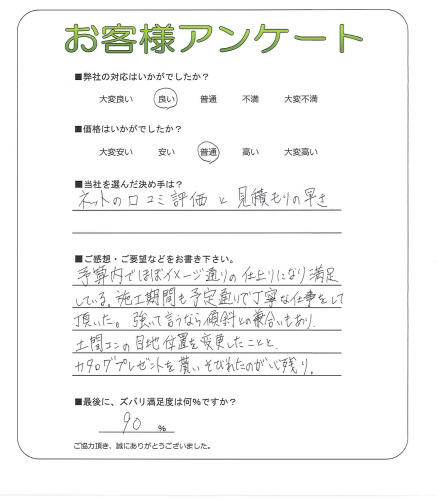 お客様アンケート
■弊社の対応はいかがでしたか？
大変良い 良い 普通 不満 大変不満
■価格はいかがでしたか？
大変安い 安い 普通 高い 大変高い
■当社を選んだ決め手は？
ネットの口コミ評価と見積もりの早さ
■ご感想・ご要望などをお書き下さい。
予算内でほぼイメージ通りの仕上りになり満足
している。施工期間も予定通りで丁寧な仕事をして
頂いた。強いて言うなら傾斜との兼合いもあり、
土間コンの目地位置を変更したことと、
カタログプレゼントを貰いそびれたのが心残り。
■最後に、ズバリ満足度は何%ですか？
90 %
ご協力頂き、誠にありがとうございました。